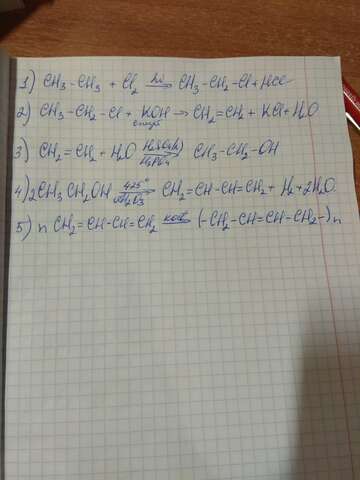 1) CH3-CH3 + Cl2 hν→ CH3-CH2-Cl + HCl
2) CH3-CH2-Cl + KOH спирт → CH2=CH2 + KCl + H2O
3) CH2=CH2 + H2O H3PO4 CH3-CH2-OH
4) 2CH3CH2OH 425° Al2O3→ CH2=CH-CH=CH2 + H2 + 2H2O.
5) n CH2=CH-CH=CH2 → (-CH2-CH=CH-CH2-)n